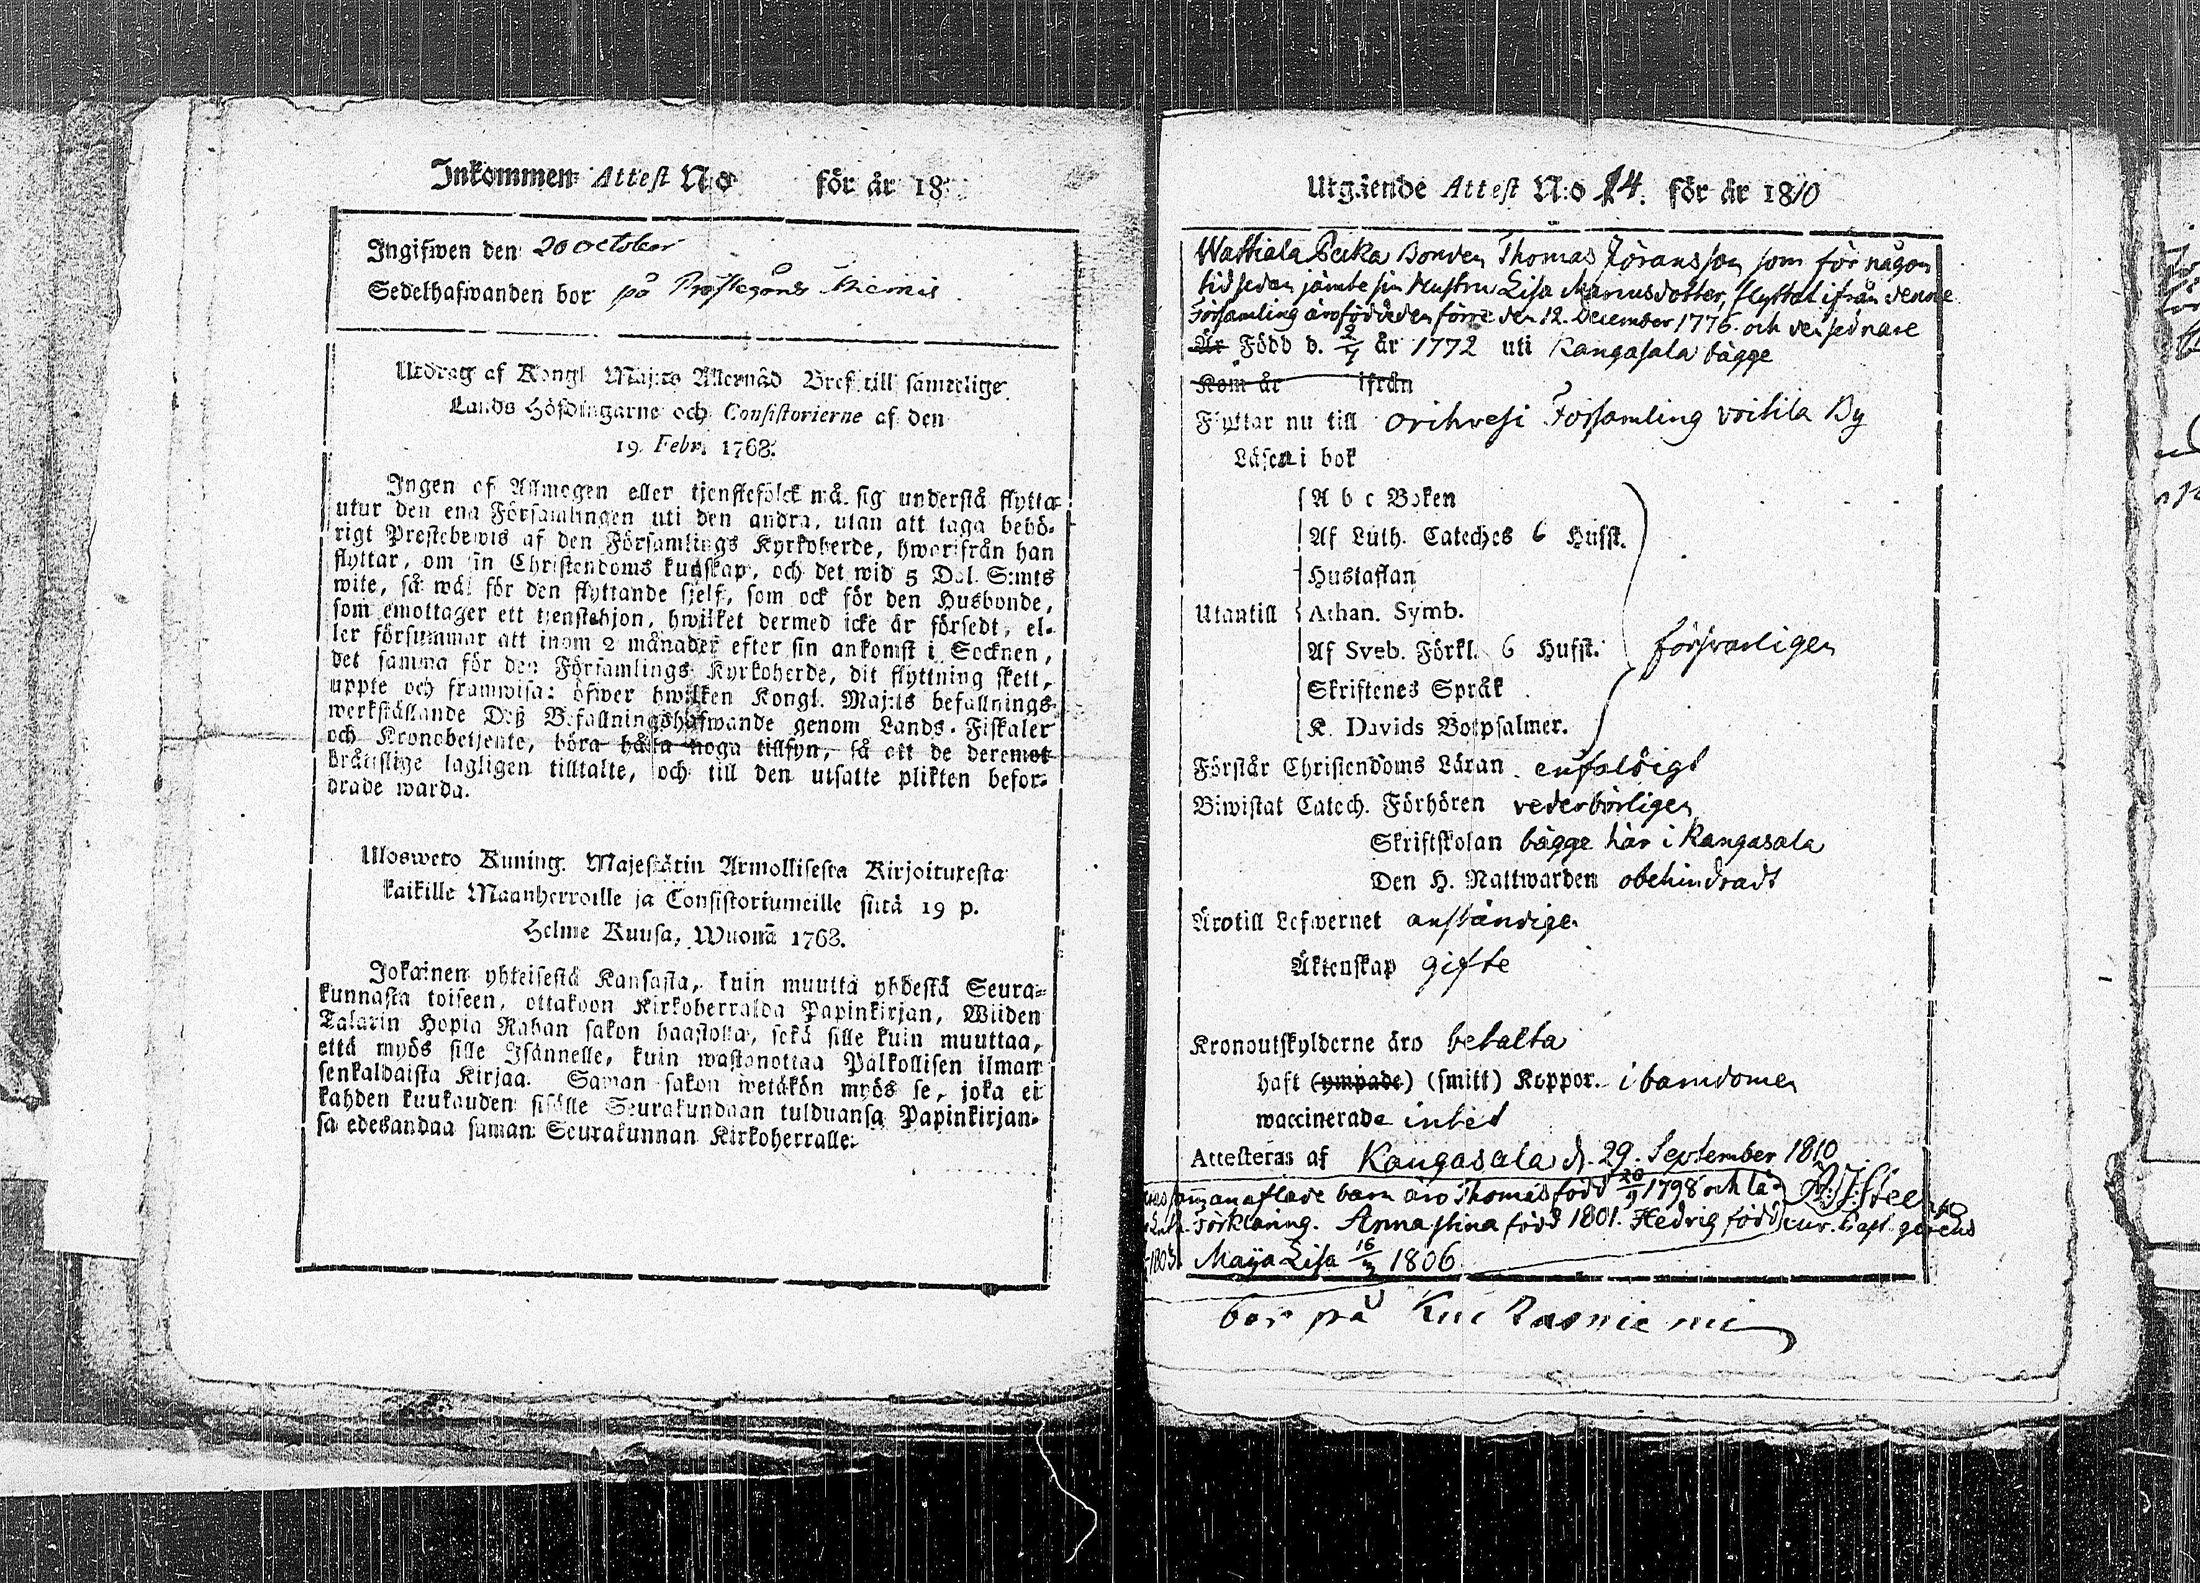 Inkommen Attest N:o för år 18
Ingifwen den 20 october
Sedelhafwanden bor på
Utdrag af Kongl Maj:ts Allernåd Bref till samtelige
Lands Höfdingarne och Consistorierne af den
19. Febr. 1768.
Ingen af Allmogen eller tjenstefolck må sig understå flytta
utur den ena Församlingen uti den andra, utan att taga behö-
rigt Prestebewis af den Församlings Kyrkoherde, hwarifrån han
flyttar, om sin Christendoms kunskap, och det wid 5 Dal. S:mts
wite, så wäl för den flyttande sjelf, som ock för den Husbonde,
som emottager ett tjenstehjon, hwilket dermed icke är försedt, el-
ler försummar att inom 2 månader efter sin ankomst i Socknen,
det samma för den Församlings Kyrkoherde, dit flyttning skett,
uppte och framwisa: öfwer hwilken Kongl. Maj:ts befallnings
werkställande Deß Befallningshafwande genom Lands-Fiskaler
och Kronobetjente, böra hålla noga tillsyn, så att de deremot
bräckslige lagligen tilltalte, och till den utsatte plikten befor-
drade warda.
Ulosweto Kuning. Majestätin Armollisesta Kirjoituxesta
kaikille Maanherroille ja Consistoriumeille siitä 19 p.
Helme Kuusa, Wuonna 1768.
Jokainen yhteisestä Kansasta, kuin muutta yhdestä Seura-
kunnasta toiseen, ottakoon Kirkoherralda Papinkirjan, Wiiden
Talarin Hopia Rahan sakon haastolla, sekä sille kuin muuttaa,
että myös sille Isännelle, kuin wastanottaa Palkollisen ilman
senkaldaista Kirjaa. Saman sakon wetäkön myös se, joka ei
kahden kuukauden sisälle Seurakundaan tulduansa Papinkirjan-
sa edesandaa saman Seurakunnan Kirkoherralle.
Utgående Attest N:o 14. för år 1810
Wattiala Pecka Bonden Thomas Jöransson som för någon
tid sedan jämte sin Hustru Lisa Mariusdotter, flyttat ifrån denne
Församling äro födde den förre den 12. December 1776 och den sednare
Är Född d. 2/7 år 1772 uti Kangasala bägge
Kom år ifrån
Flyttar nu till Orihvesi Församling Voitila By
Läsa i bok
A b c Boken
Af Luth. Cateches 6 Hufst.
Hustaflan
Utantill Athan. Symb.
Af Sveb. Förkl. 6 Hufst. försvarligen
Skriftenes Språk
K. Davids Botpsalmer.
Förstår Christendoms Läran enfaldigt
Biwistat Catech. Förhören vederbörligen
Skriftskolan bägge här i Kangasala
Den H. Nattwarden obehindradt
Äro till Lefwernet anständige
Äktenskap gifte
Kronoutskylderne äro betalta
haft (ympade) (smitt) Koppor. i barndomen
waccinerade intet
Attesteras af Kangasala d. 29. September 1810
sammanaflade barn äro Thomas född 20/9 1798 och lä-
Förklaring. Anna Stina född 1801. Hedvig född cur. Past. gerens
1803. Maija Lisa 16/3 1806
bor på